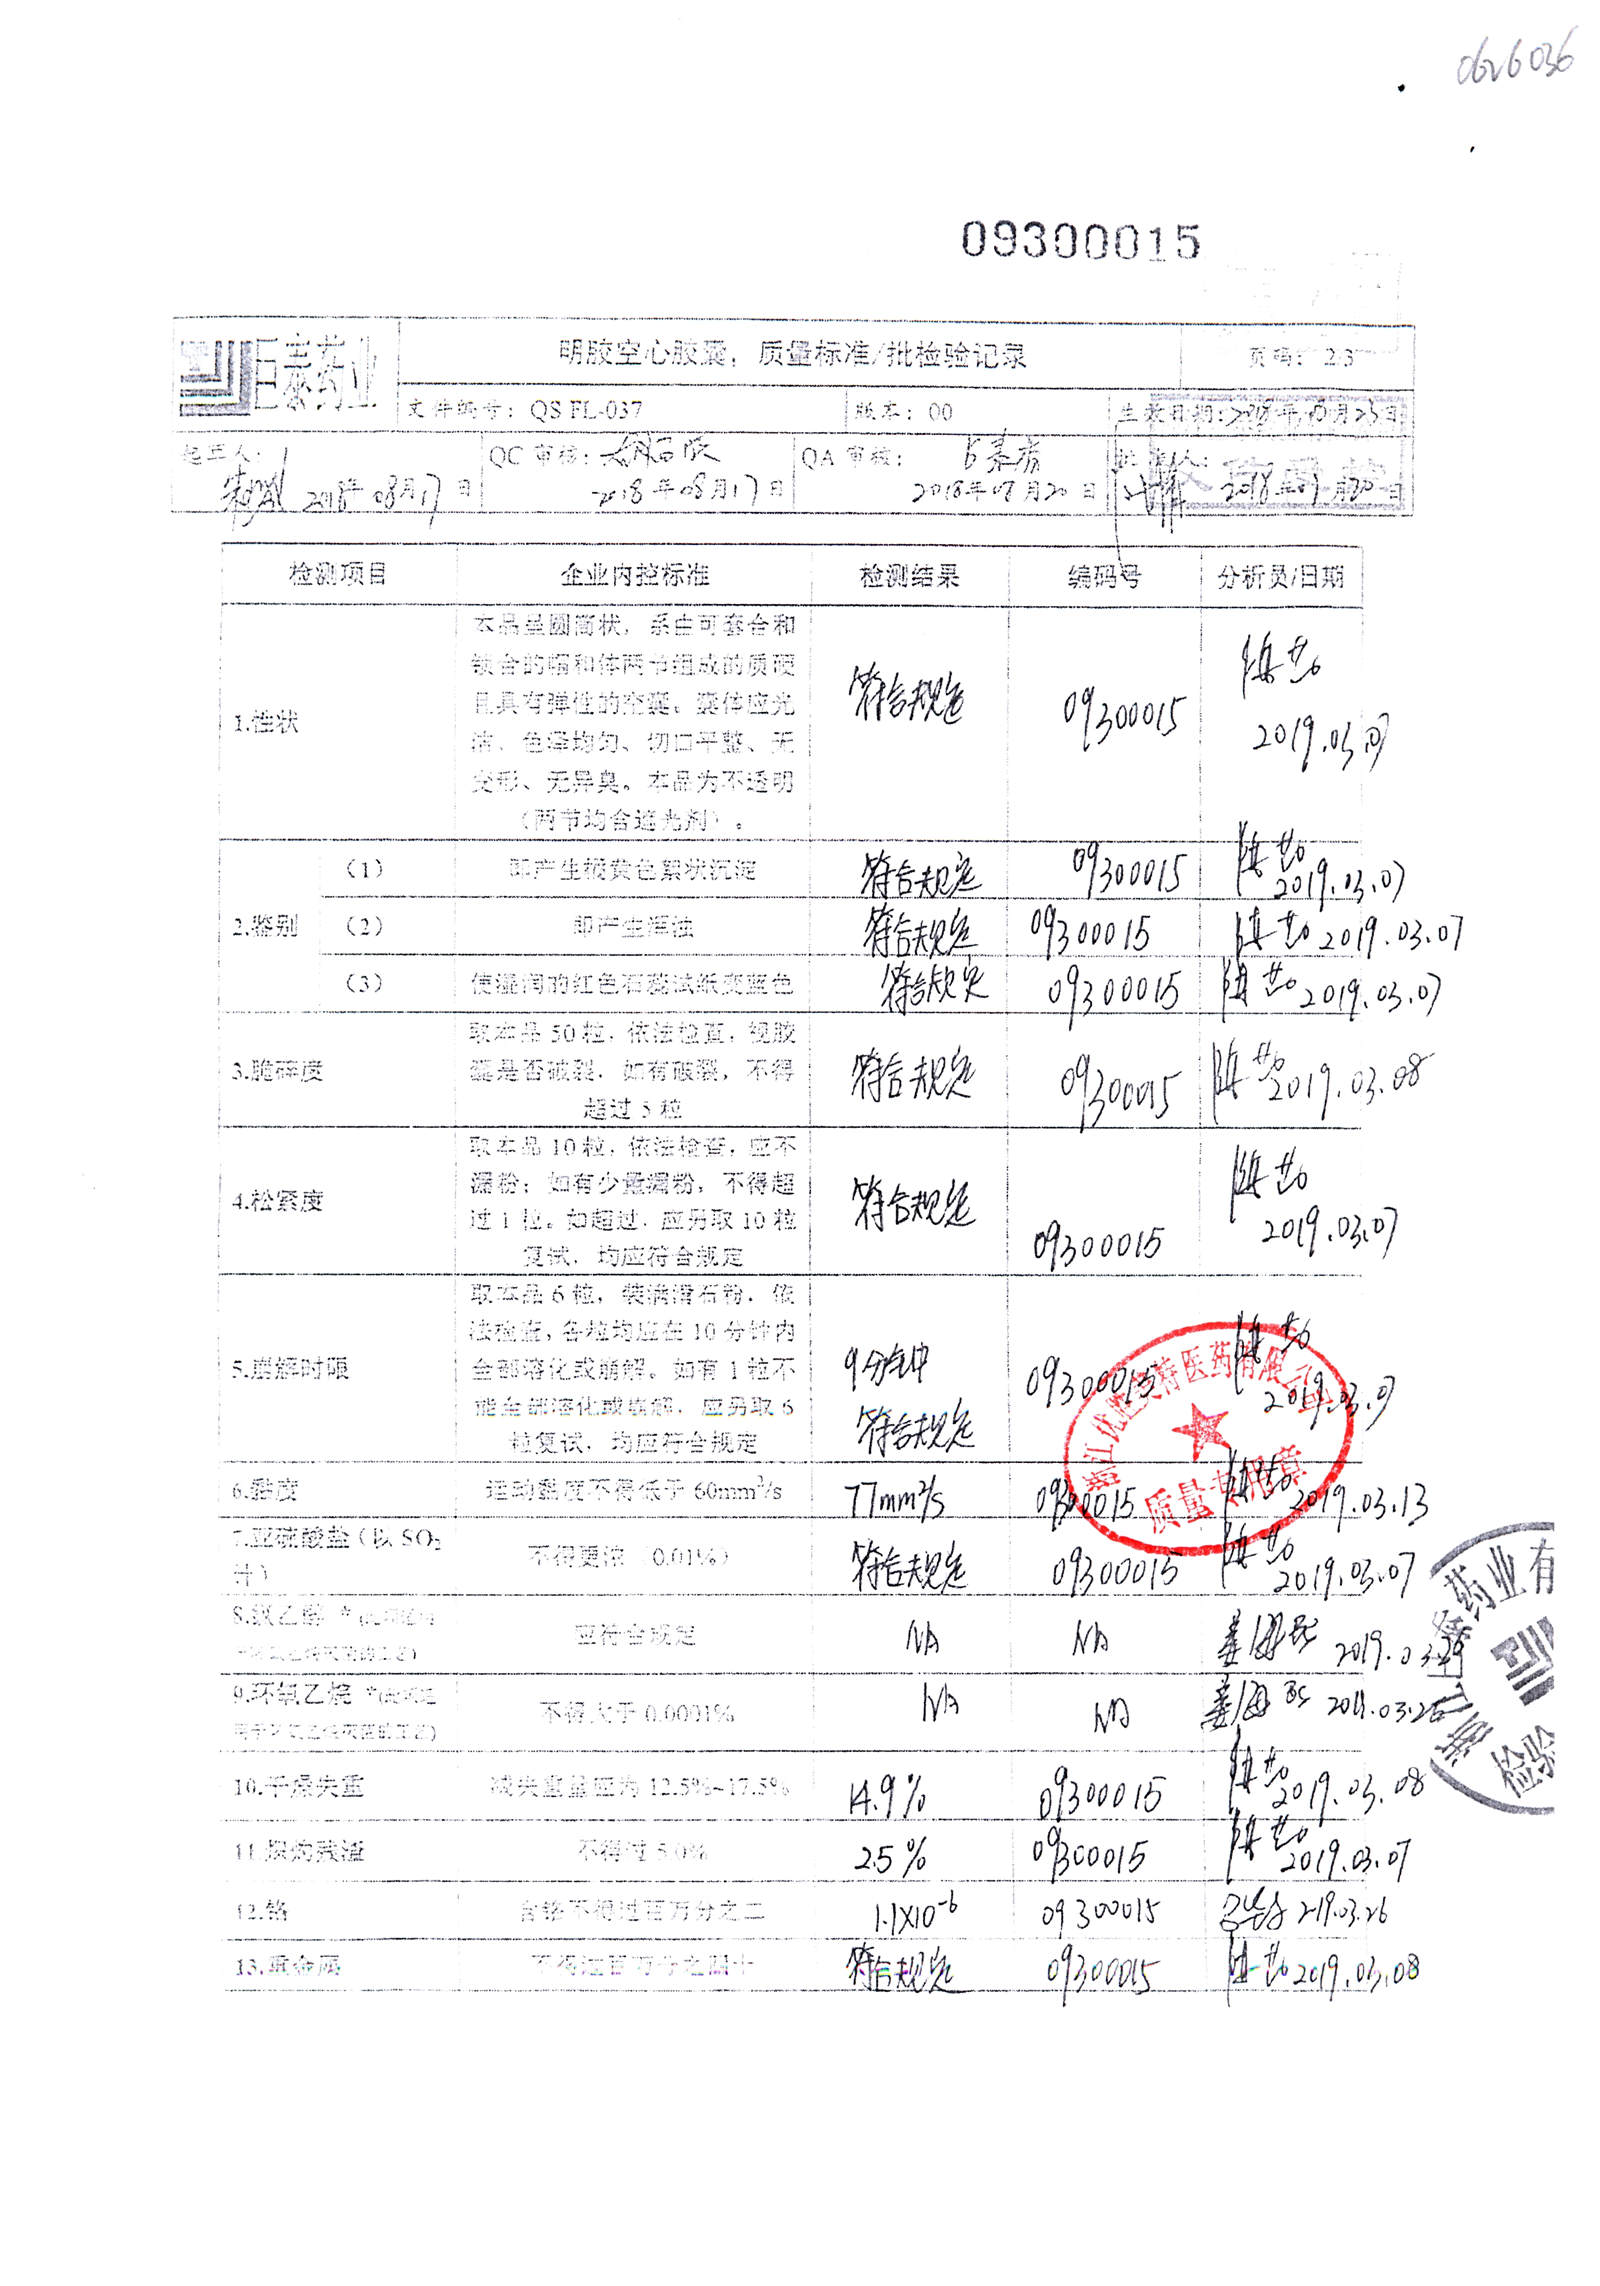 0626036
09300015
巨泰药业
明胶空心胶囊,质量标准/批检验记录
页码: 2/3
文件编号: QS FL-037
版本: 00
生效日期:2018年08月23日
起草人:
2018年08月17日
QC 审核:
2018年08月17日
QA 审核:
2018年08月20日
批准人:
检测项目 企业内控标准 检测结果 编码号 分析员/日期
1.性状
本品呈圆筒状,系由可套合和
锁合的帽和体两节组成的质硬
且具有弹性的空囊。囊体应光
洁、色泽均匀、切口平整、无
变形、无异臭。本品为不透明
(两节均含遮光剂)。
符合规定
09300015
2019.03.07
2.鉴别
(1) 即产生橘黄色絮状沉淀 符合规定 09300015
2019.03.07
(2) 即产生浑浊 符合规定 09300015 2019.03.07
(3) 使湿润的红色石蕊试纸变蓝色 符合规定 09300015 2019.03.07
3.脆碎度
取本品 50 粒,依法检查,视胶
囊是否破裂,如有破裂,不得
超过 5 粒
符合规定 09300015 2019.03.08
4.松紧度
取本品 10 粒,依法检查,应不
漏粉;如有少量漏粉,不得超
过 1 粒。如超过,应另取 10 粒
复试,均应符合规定
符合规定
09300015
2019.03.07
5.崩解时限
取本品 6 粒,装满滑石粉,依
法检查,各粒均应在 10 分钟内
全部溶化或崩解。如有 1 粒不
能全部溶化或崩解,应另取 6
粒复试,均应符合规定
9分钟
符合规定
09300015
2019.03.07
6.黏度 运动黏度不得低于 60mm²/s 77mm²/s 09300015 2019.03.13
7.亚硫酸盐(以 SO₂
计)
不得更浓(0.01%) 符合规定 09300015 2019.03.07
8.氯乙醇 *
应符合规定 NA NA
9.环氧乙烷 *
不得大于 0.0001% NA NA
10.干燥失重 减失重量应为 12.5%~17.5% 14.9% 09300015 2019.03.08
11.炽灼残渣 不得过 5.0% 2.5% 09300015 2019.03.07
12.铬 含铬不得过百万分之二 1.1×10⁻⁶ 09300015 2019.03.26
13.重金属 不得过百万分之四十 符合规定 09300015 2019.03.08
质量专用章
药业有
检验